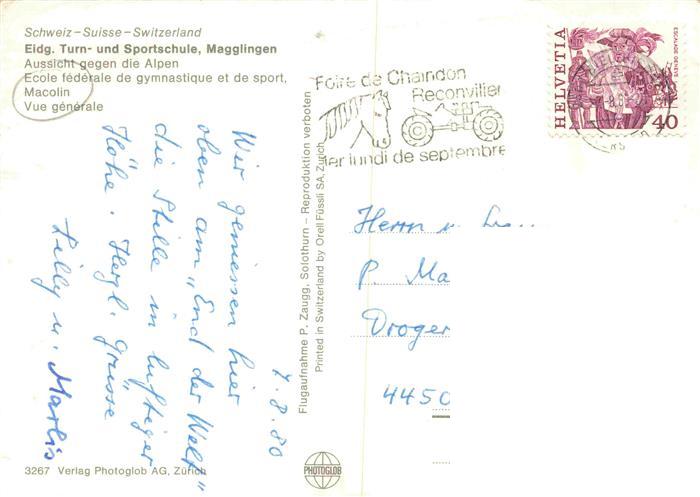 Schweiz – Suisse – Switzerland
Eidg. Turn- und Sportschule, Magglingen
Aussicht gegen die Alpen
Ecole fédérale de gymnastique et de sport,
Macolin
Vue générale
Foire de Chaindon
Reconvilier
1er lundi de septembre
HELVETIA
ESCALADE GENÈVE
40
7.8.80
Wir geniessen hier
oben am „End der Welt"
die Stille in luftiger
Höhe. Herzl. Grüsse
Lilly u. Marlis
Flugaufnahme P. Zaugg, Solothurn – Reproduktion verboten
Printed in Switzerland by Orell Füssli SA, Zürich
Herrn u.
P. Ma
Droger
4450
3267 Verlag Photoglob AG, Zürich
PHOTOGLOB